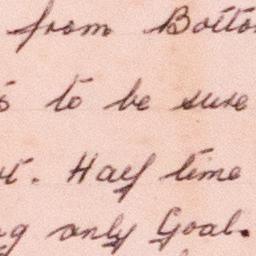 from Botto
s to be sure
t. Half time
g only Goal.